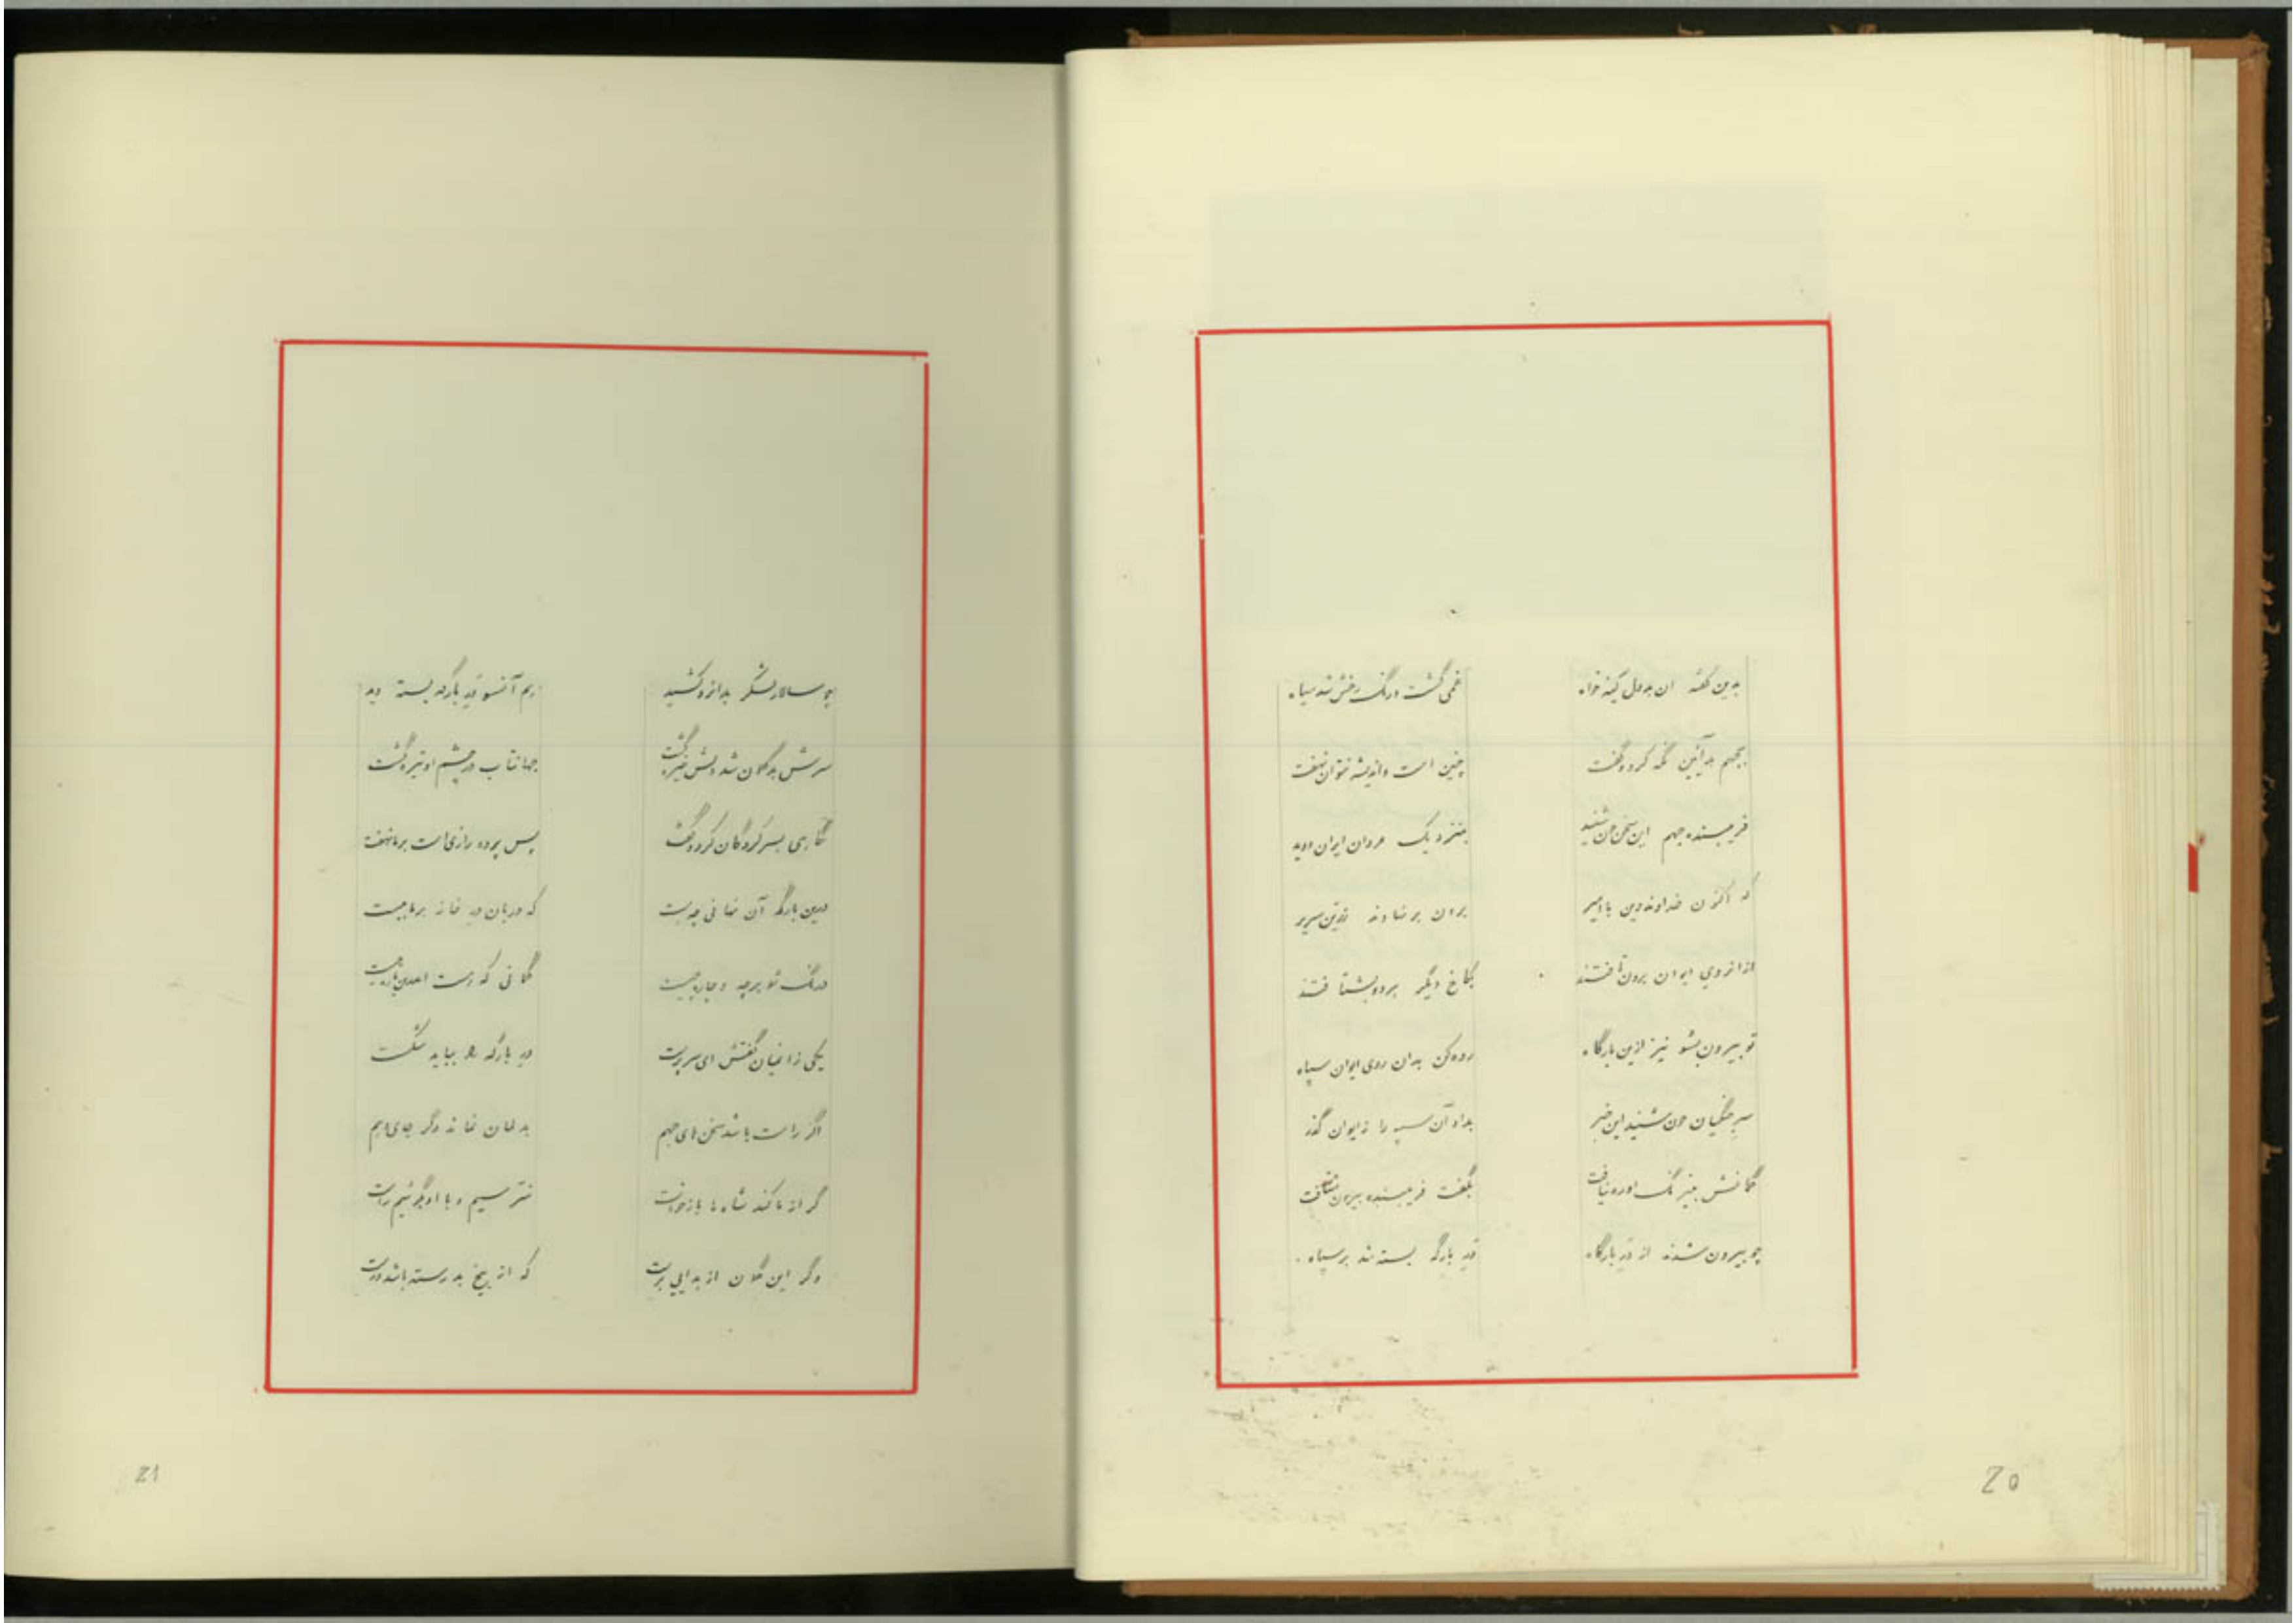 بدین گفته آن بد دل کینه خواه غمی گشت و رنگ رخش شد سیاه
بجهم بدآئین نگه کرد و گفت چنین است و اندیشه نتوان نهفت
فریبنده جهم این سخن چون شنید بنزدیک مردان ایران دوید
که اکنون خداوند دین با امیر بران بر نهادند زرین سریر
از انروی ایوان برون تافتند بکاخ دیگر بردو بشتافتند
تو بیرون بشو نیز ازین بارگاه رده کن بدان روی ایوان سپاه
سر جنگیان چون شنید این خبر بداد آن سپه را ز ایوان گذر
گمانش بنیرنگ او ره نیافت بگفت فریبنده بیرون شتافت
چو بیرون شدند از در بارگاه در بارگه بسته شد بر سپاه
20
چو سالار لشکر بدانره کشید هم آنسو در بارگه بسته دید
سرش بد گمان شد دلش خیره گشت جهانتاب در چشم او تیره گشت
نگاهی بسر کردگان کرد و گفت پس پرده رازی است بر ما نهفت
درین بارگه آن نهانی چه بست که دربان در خانه بر ما ببست
درنگ تو بر چه و چاره چیست گمانی که هست اندرین باره چیست
یکی زانمیان گفتش ای سرپرست در بارگه را بباید شکست
اگر راست باشد سخن های جهم بدلمان نماند دگر جای وهم
گر از ما کند شاه ما بازخواست نترسیم و با او بگوئیم راست
وگر این گمان از بدایی برست که از بیخ بد رسته باشد درست
21